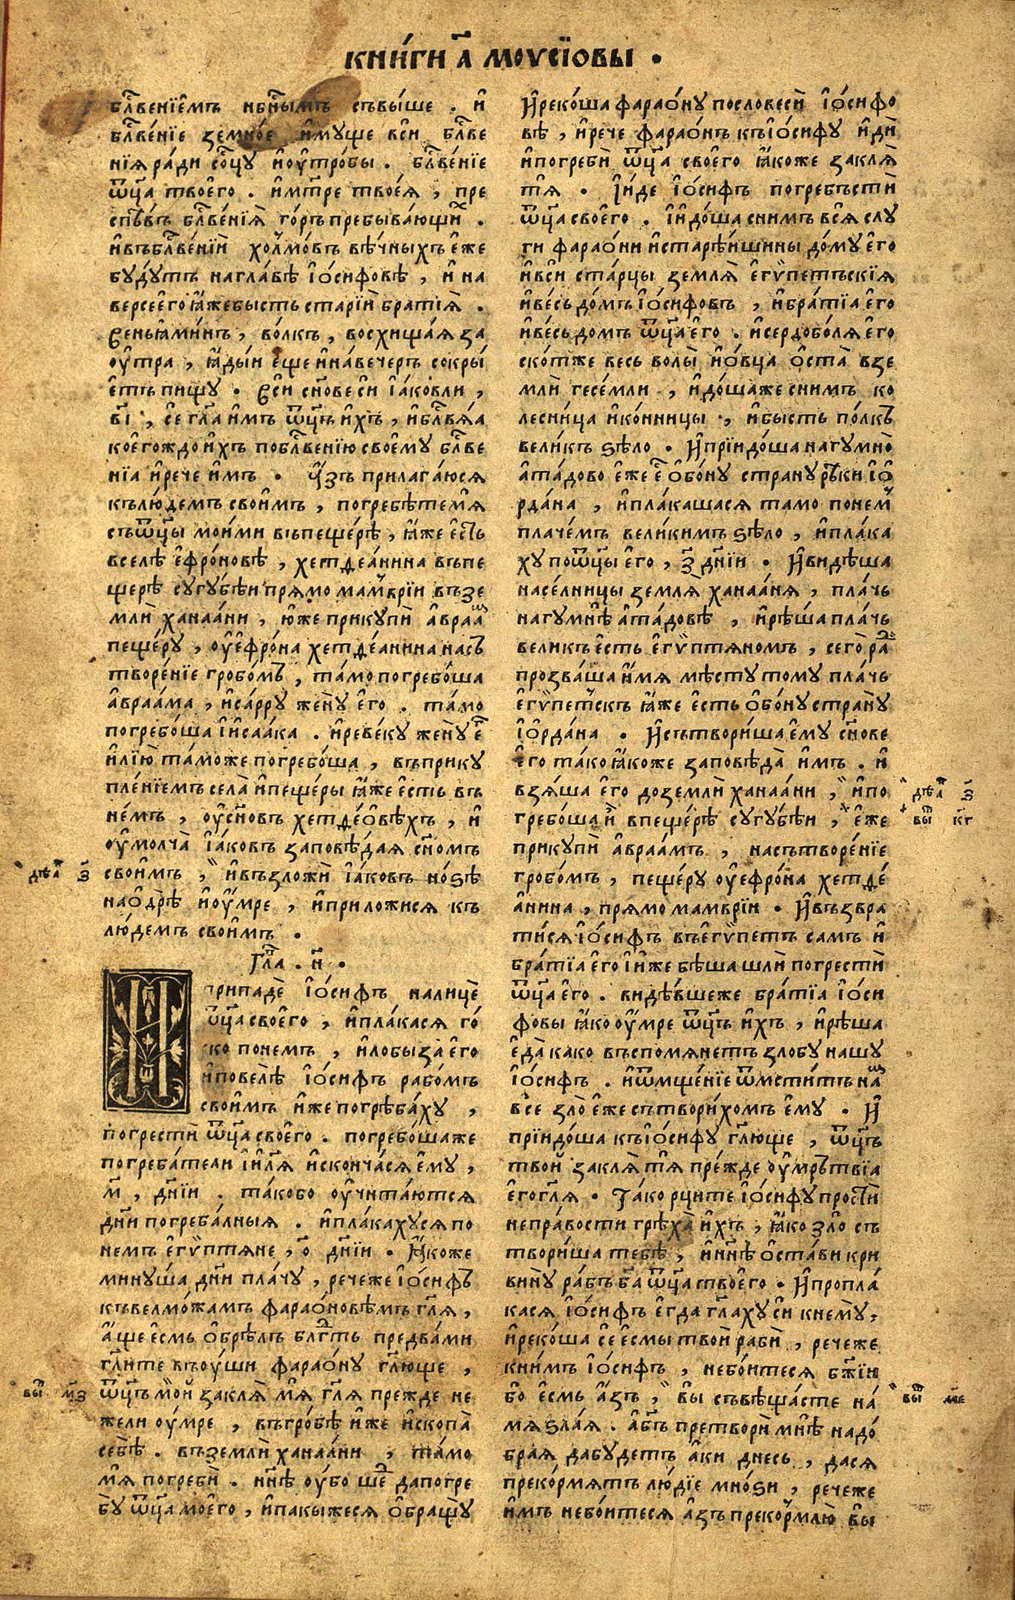 кни́ги а҃ моусїовы .
бл҃ве́нїемъ нб҃нымъ съвы́ше . и҆
бл҃ве́нїе земно́е и҆му́ще вси бл҃ве
нїѧ ра́ди сосцу̀ и҆оу҆тро́бы . бл҃ве́нїе
ѿц҃а твоего̀ . и҆мт҃ре твоеѧ̀ , пре
спѣ́въ бл҃ве́нїѧ го́ръ пребыва́ющи .
и҆въбл҃ве́нїи хо́лмовъ вѣ́чныхъ е҆же
бу́дутъ наглавѣ̀ і҆о́сифовѣ , и҆ на
версе его̀ ꙗ҆жебысть старі́и бра́тїѧ .
Венꙗми́нъ , во́лкъ , восхища́ѧ за
оу҆тра , ꙗ҆ды́и е҆ще и҆на́вечеръ сокры́
е҆тъ пи́щу . Вси сн҃ове си і҆а́ковли ,
в҃і , се гл҃а и҆мъ ѿц҃ъ и҆хъ , и҆бл҃вѧ
коего́ждо и҆хъ побл҃ве́нїю своему̀ бл҃ве
нїа и҆рече и҆мъ . А҆зъ прилага́юсѧ
къ лю́демъ свои́мъ , погребѣ́темѧ
съѿц҃ы мои́ми въпеще́рѣ , ꙗ҆же е҆сть
вселѣ̀ е҆фро́новѣ , хетде́анина въпе
ще́рѣ сугу́бѣи прѧ́мо ма́мврїи възе
млѝ ханаа́ни , ю҆же прикупѝ а҆враа
пеще́ру , оу҆ефро́на хетде́анина насъ
творе́нїе гробомъ , та́мо погребо́ша
а҆враа́ма , и҆са́рру жену̀ его̀ . та́мо
погребо́ша и҆иса́ака . и҆реве́ку жену̀ е҆
и҆лі́ю та́може погребо́ша , въприку
пле́нїемъ села̀ и҆пеще́ры ꙗ҆же е҆сть въ
не́мъ , оу҆сновъ хетде́овѣхъ , и҆
оу҆молча̀ і҆а́ковъ заповѣ́даѧ сн҃омъ
свои́мъ , и҆възложѝ і҆а́ковъ но́ѕѣ
наѻ҆дрѣ̀ и҆оу҆мре , и҆приложисѧ къ
лю́демъ свои́мъ .
Гла҃ . н҃ .
припадѐ і҆о́сифъ налицѐ
ѿц҃а своего̀ , и҆пла́касѧ го́
ко по не́мъ , и҆лобыза̀ его̀
и҆повелѣ̀ і҆о́сифъ рабо́мъ
свои́мъ и҆же погрѣба́ху ,
погрестѝ ѿц҃а своего̀ . погребо́шаже
погреба́тели і҆и҃лѧ и҆сконча́сѧ е҆му̀ ,
м҃ , дні́и . та́кобо оу҆чита́ютсѧ
дни погреба́лныѧ . и҆пла́кахусѧ по
не́мъ е҆гѵ́птѧне , о҃ дні́и . Ꙗ҆коже
мину́ша дни пла́чу , рече́же і҆о́сифъ
къвелмо́жамъ фарао́новѣмъ гл҃ѧ ,
а҆ще е҆смь ѻ҆брѣ́лъ блг҃ть предва́ми
гл҃ите въоу́ши фарао́ну гл҃юще ,
ѿц҃ъ мо́и заклѧ̀ мѧ̀ гл҃ѧ пре́жде не
же́ли оу҆мре , въгро́бѣ и҆же и҆скопа̀
себѣ̀ . въземлѝ ханаа́ни , та́мо
мѧ̀ погребѝ . нн҃ѣ оу҆бо ше дапогре
бу̀ ѿц҃а моего̀ , и҆па́кыжесѧ ѻ҆бращу̀
И҆реко́ша фарао́ну пословеси́ і҆о́сифо
вѣ , и҆рече фарао́нъ къі҆о́сифу и҆дѝ
и҆погребѝ ѿц҃а своего̀ ꙗ҆коже заклѧ̀
тѧ . І҆и́де і҆о́сифъ погребъстѝ
ѿц҃а своего̀ . і҆идо́ша сни́мъ всѧ̀ слу
ги фарао́ни и҆старѣ́ишины до́му его̀
и҆вси ста́рцы землѧ̀ е҆гѵ́петьскїѧ
и҆ве́сь до́мъ і҆о́сифовъ , и҆бра́тїа его̀
и҆ве́сь домъ ѿц҃а его̀ . и҆сердобо́лѧ его̀
ско́тже весь волы̀ и҆о́вца ѡ҆ста̀ взе
млѝ гесе́мли , и҆до́шаже сни́мъ ко
лесни́ца и҆ко́нницы , и҆бысть полкъ
вели́къ ѕѣло̀ . И҆прїидо́ша нагумно̀
а҆та́дово е҆же е҆ ѻ҆бону̀ страну̀ рѣки і҆ѻ
рда́на , и҆пла́кашасѧ тамо понем
пла́чемъ вели́кимъ ѕѣло̀ , и҆пла́ка
ху поѿц҃ы его̀ , з҃ дні́и . И҆видѣ́ша
насе́лницы землѧ̀ ханаа́нѧ , пла́чь
нагумнѣ̀ а҆та́довѣ , и҆рѣ́ша пла́чь
вели́къ е҆сть е҆гѵ́птѧномъ , сего̀ ра
прозва́ша и҆мѧ мѣ́сту тому̀ пла́чь
е҆гѵ́петскъ ꙗ҆же е҆сть ѻ҆бону̀ страну̀
і҆ѻрда́на . И҆сътвори́ша е҆му̀ сн҃ове
его̀ та́ко ꙗ҆коже заповѣ́да и҆мъ . и҆
взѧ́ша его̀ доземлѝ ханаа́ни , и҆по
гребо́ша и҆ впеще́рѣ сугу́бѣи , е҆же
прикупѝ а҆враа́мъ , насътворе́нїе
гробо́мъ , пеще́ру оу҆ефро́на хетде́
анина , прѧ́мо мамврі́и . И҆възвра
ти́сѧ і҆о́сифъ въегѵ́петъ самъ и҆
бра́тїа его̀ і҆и́же бѣ́ша шлѝ погрестѝ
ѿц҃а его̀ . видѣ́вшеже бра́тїа і҆о́си
фовы ꙗ҆ко оу҆мре ѿц҃ъ и҆хъ , и҆рѣ́ша
е҆да̀ како въспомѧ́нетъ зло́бу на́шу
і҆о́сифъ . и҆ѿмще́нїе ѿмсти́тъ на
все зло̀ е҆же сътвори́хомъ е҆му̀ . И҆
прїидо́ша къі҆о́сифу гл҃юще , ѿц҃ъ
тво́и заклѧ̀ тѧ̀ пре́жде оу҆мрътвїа
его̀ гл҃ѧ . Та́ко рците і҆о́сифу простѝ
непра́вости грѣха̀ и҆хъ , ꙗ҆ко зло̀ съ
твори́ша тебѣ̀ , и҆нн҃ѣ ѡ҆ста́ви кри
вину̀ ра́бъ бг҃а ѿц҃а твоего̀ . И҆пропла́
касѧ і҆о́сифъ е҆гда̀ гл҃аху си кнему̀ ,
и҆реко́ша се е҆смы̀ твоѝ рабѝ , рече́же
кни́мъ і҆о́сифъ , небо́итесѧ бж҃іи
бо е҆смь а҆зъ , вы̀ съвѣща́сте на́
мѧ ѕла́ѧ . а҆бг҃ъ претворѝ мнѣ̀ надо́
браѧ дабу́детъ а҆ки дне́сь , дасѧ
преко́рмѧтъ лю́дїе мно́ѕи , рече́же
и҆мъ небо́итесѧ а҆зъ прекормлю̀ вы
дѣа з҃
вы мз҃
дѣа з҃
вы кг҃
вы ме҃